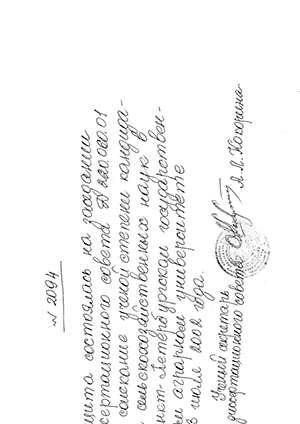 № 2094
щита состоялась на заседании
сертационного совета Д 220.060.01
соискание ученой степени кандида-
сельскохозяйственных наук в
нкт-Петербургском государствен-
м аграрном университете
3 июля 2002 года.
Ученый секретарь
диссертационного совета